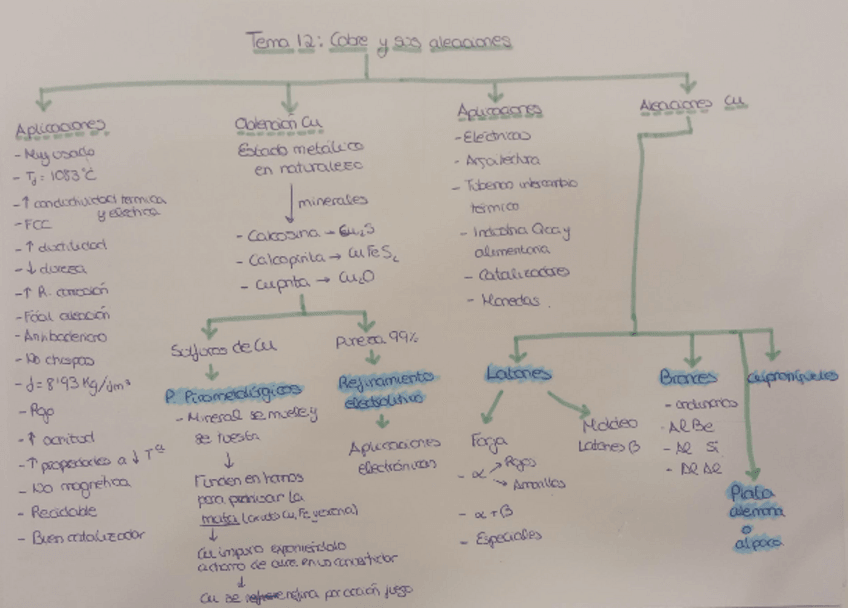 Tema 12: Cobre y sus aleaciones
Aplicaciones
- Muy usado
- Tf = 1083°C
- ↑ conductividad térmica
y eléctrica
- FCC
- ↑ ductilidad
- ↓ dureza
- ↑ R. corrosión
- Fácil aleación
- Antibacteriano
- No chispas
- d = 8'93 Kg/dm³
- Rojo
- ↑ acritud
- ↑ propiedades a ↓ Tª
- No magnética
- Reciclable
- Buen catalizador
Obtención Cu
Estado metálico
en naturaleza
minerales
- Calcosina → Cu₂S
- Calcopirita → CuFeS₂
- Cuprita → Cu₂O
Sulfuros de Cu
P. Pirometalúrgicos
- Mineral se muele y
se tuesta
Funden en hornos
para producir la
mata (
Cu impuro
a chorro de aire, en un convertidor
Cu se refina por acción fuego
Pureza 99%
Refinamiento
electrolítico
Aplicaciones
electrónicas
Aplicaciones
- Eléctricas
- Arquitectura
- Tuberías intercambio
térmico
- Industria Qca y
alimentaria
- Catalizadores
- Monedas
Aleaciones Cu
Latones
Forja
- α → Rojos
→ Amarillos
- α + β
- Especiales
Moldeo
Latones β
Bronces
- ordinarios
- Al Be
- Al Si
- Al Al
Plata
alemana
o
alpaca
Cuproníqueles